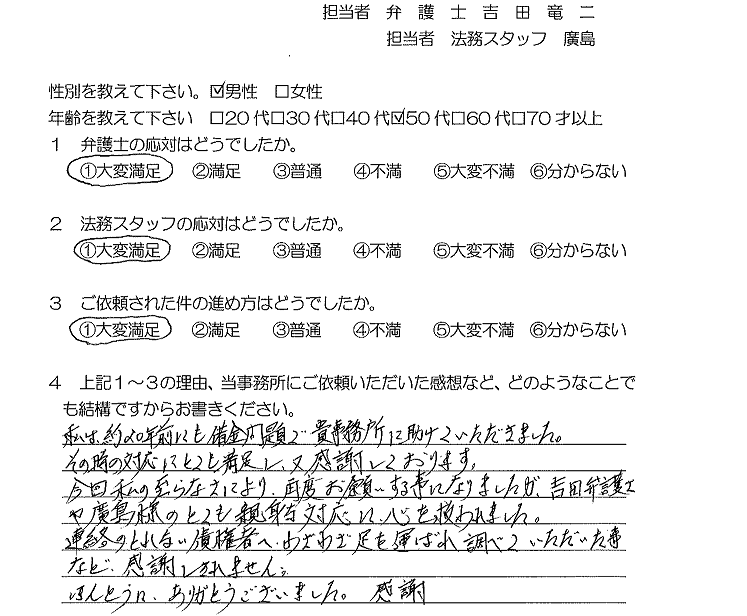 担当者 弁護士吉田竜二
担当者 法務スタッフ 廣島
性別を教えて下さい。☑男性 □女性
年齢を教えて下さい □20代□30代□40代☑50代□60代□70才以上
1 弁護士の応対はどうでしたか。
①大変満足 ②満足 ③普通 ④不満 ⑤大変不満 ⑥分からない
2 法務スタッフの応対はどうでしたか。
①大変満足 ②満足 ③普通 ④不満 ⑤大変不満 ⑥分からない
3 ご依頼された件の進め方はどうでしたか。
①大変満足 ②満足 ③普通 ④不満 ⑤大変不満 ⑥分からない
4 上記1~3の理由、当事務所にご依頼いただいた感想など、どのようなことで
も結構ですからお書きください。
私は約20年前にも借金問題で貴事務所に助けていただきました。
その時の対応にとても満足し、又感謝しております。
今回私の至らなさにより、再度お願いする事になりましたが、吉田弁護士
や廣島様のとても親身な対応に、心を救われました。
連絡のとれない債権者へ、わざわざ足を運ばれ調べていただいた事
など、感謝しきれません。
ほんとうに、ありがとうございました。 感謝